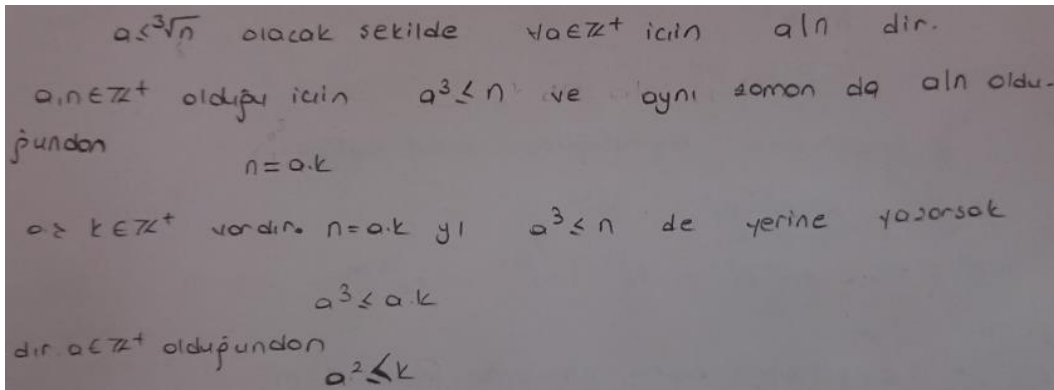 a≤³√n olacak şekilde ∀a∈Z⁺ için a|n dir.
a,n∈Z⁺ olduğu için a³≤n ve aynı zaman da a|n oldu-
ğundan
n=a.k
a.ş k∈Z⁺ vardır. n=a.k yı a³≤n de yerine yazarsak
a³≤a.k
dır. a∈Z⁺ olduğundan
a²≤k